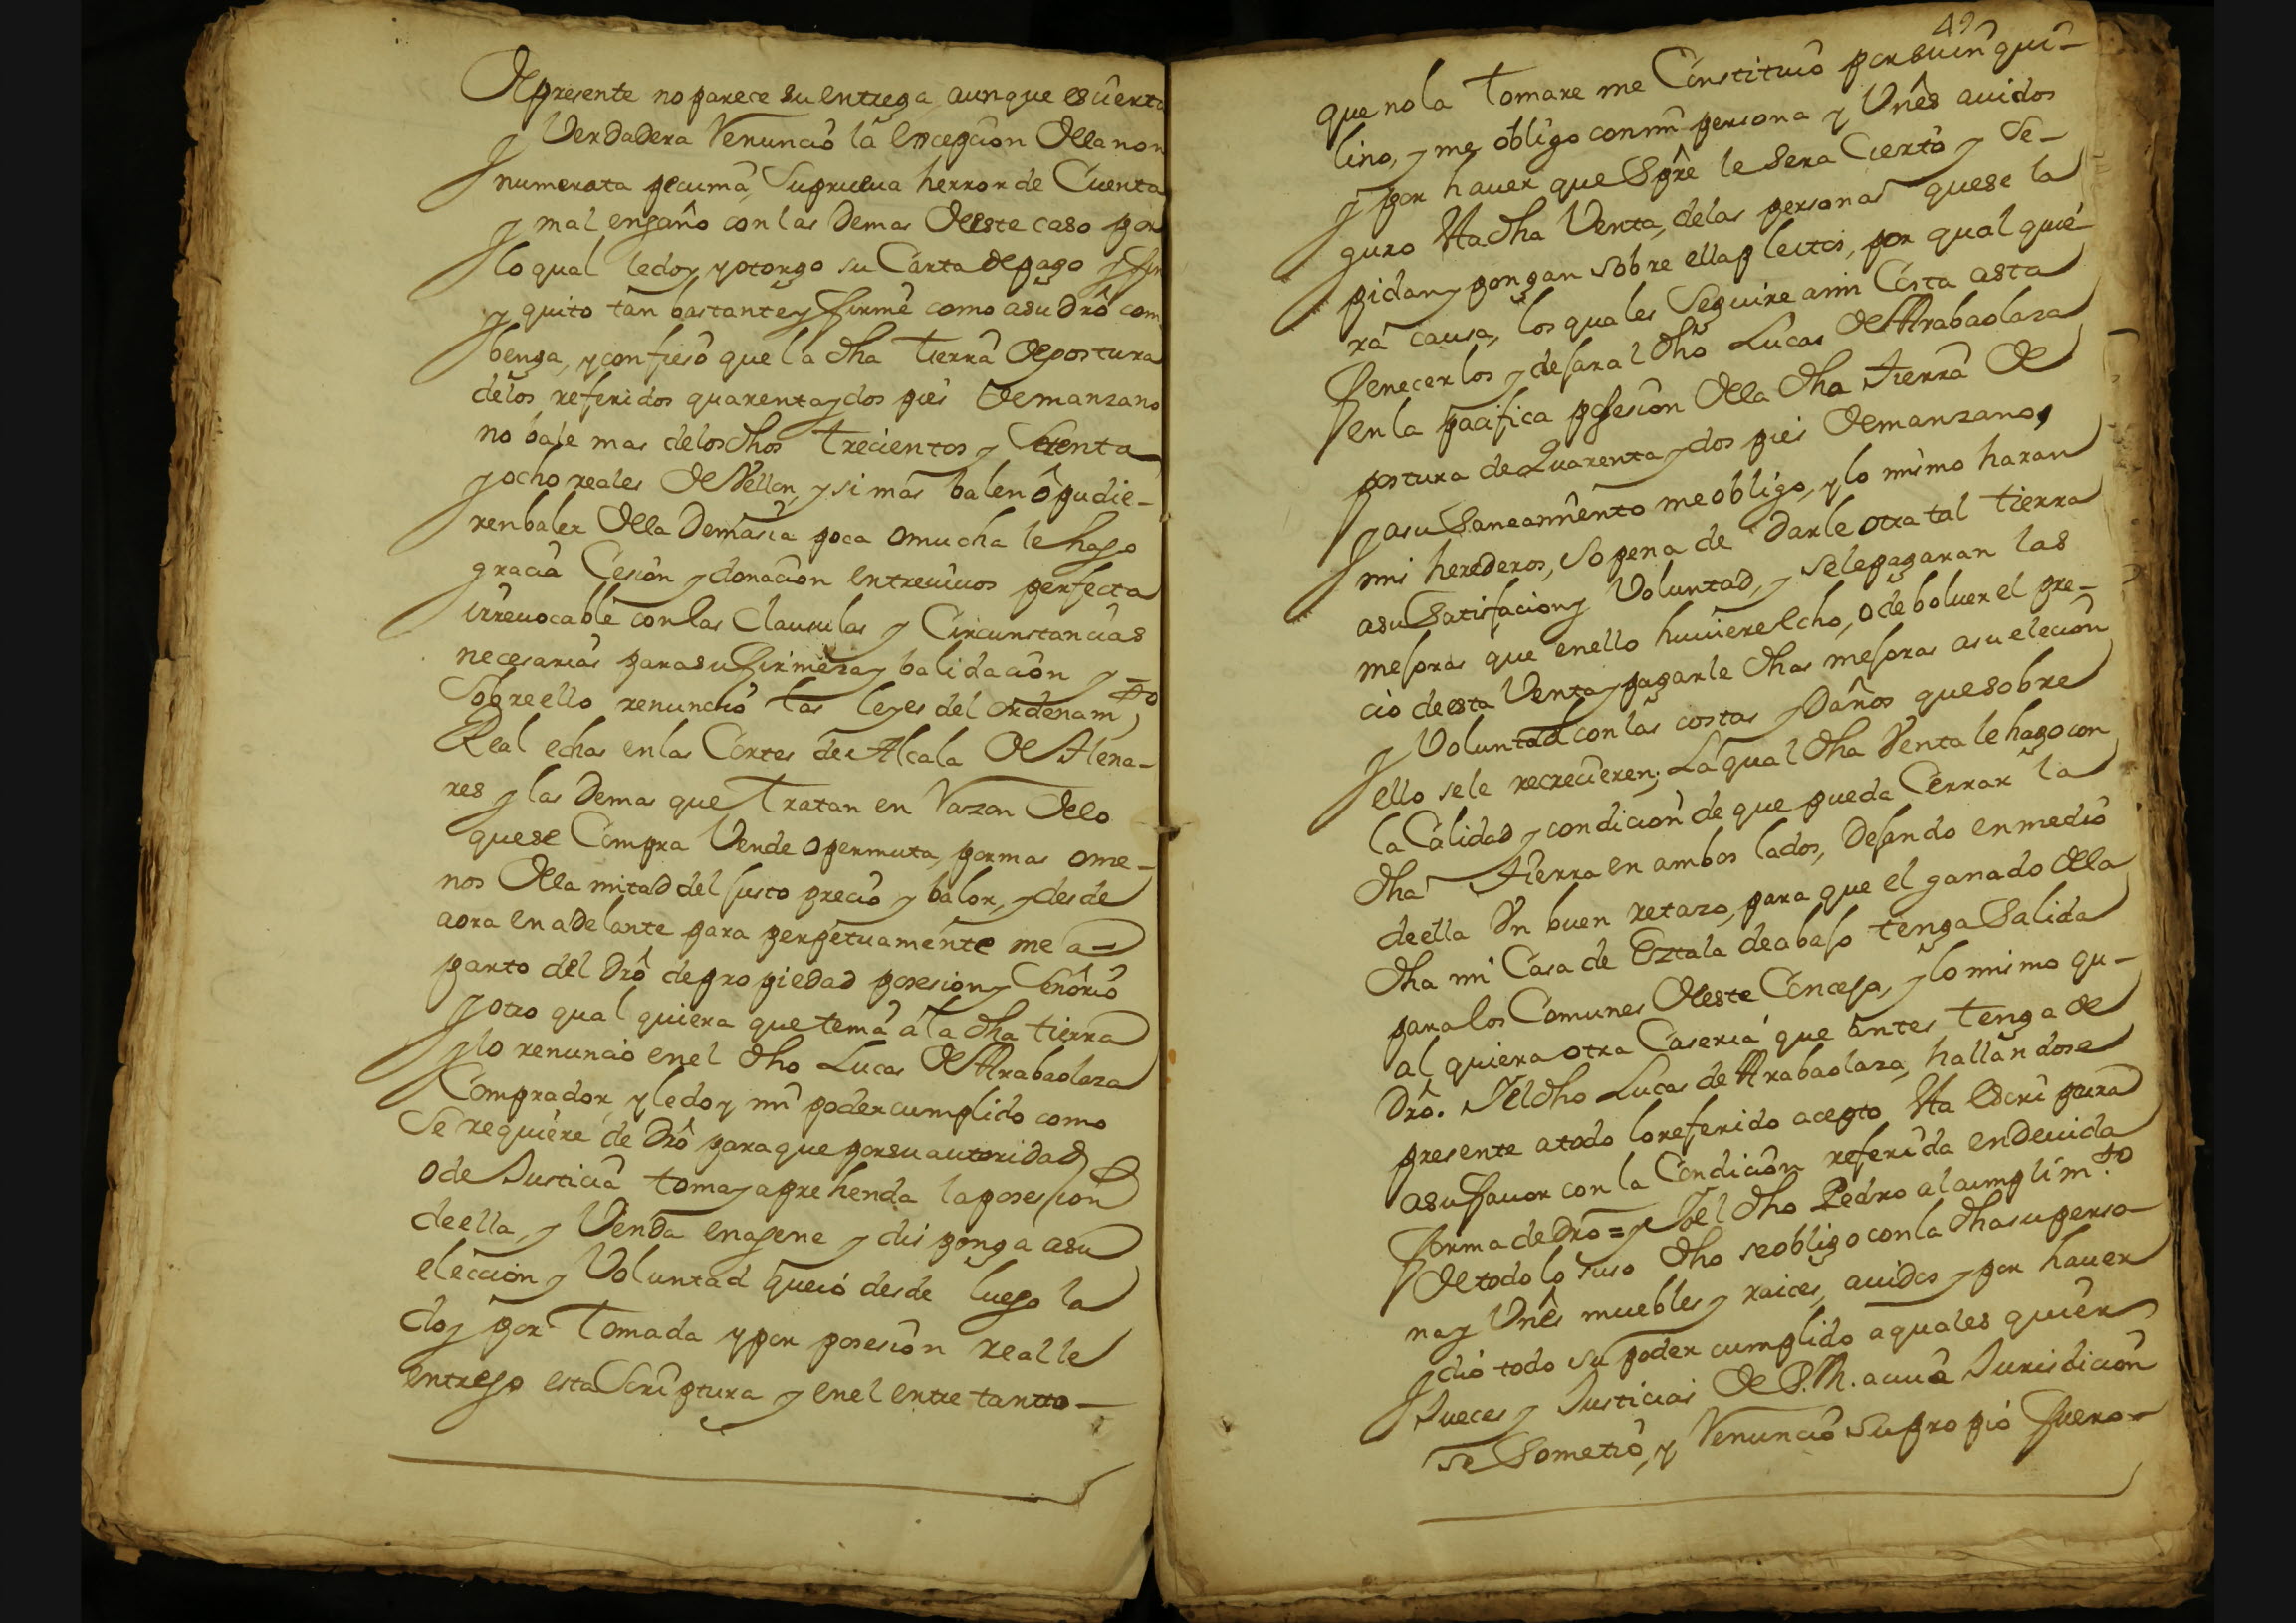 De presente no parece su entrega, aunque es cierta
y Verdadera Renunció la excepcion de la non
numerata pecunia, su prueua herror de Cuenta
y mal engaño con las Demas de este caso por
lo qual le doy y otorgo su Carta de pago y fin
y quito tan bastante y firme como a su Drô com
benga, y confieso que la dha tierra de postura
de los referidos quarenta y dos pies de manzano
no bale mas de los dhos trecientos y setenta
y ocho reales de Vellon, y si mas balen ô pudie-
ren baler de la Demasia poca o mucha le hago
gracia Cesion y donacion entreviuos perfecta
irreuocable con las Clausulas y Circunstancias
necesarias para su firmeza y balidacion y
sobre ello renunció las leyes del ordenamto
Real echas en las Cortes de Alcala de Alena-
res y las Demas que tratan en Razon de lo
que se Compra Vende o permuta, por mas o me-
nos de la mitad del justo precio y balor, y desde
aora en adelante para perpetuamente me a-
parto del Drô de propiedad posesion y Señorio
y otro qual quiera que tenia â la dha tierra
y lo renunció en el dho Lucas de Arabaolaza
Comprador, y le doy mi poder cumplido como
se requiere de Drô para que por su autoridad
o de Justicia toma y aprehenda la posesion
de ella, y Venda enagene y disponga a su
eleccion y Voluntad que ió desde luego la
doy por tomada y por posesion real le
entrego esta Scriptura y en el entre tantto-
49
que no la tomare me Constituió por su inqui-
lino, y me obligo con mi persona y Vnês auidos
y por hauer que Spre le sera Cierto y se-
guro Ha dha Venta, de las personas que se la
pidan y pongan sobre ella pleitos, por qual quie
ra causa, los quales seguire a mi Costa asta
fenecerlos y dejar al dho Lucas de Arabaolaza
en la pacifica posesion de la dha tierra de
postura de Quarenta y dos pies de manzano,
y a su Saneamiento me obligo, y lo mismo haran
mis herederos, so pena de Darle otra tal tierra
a su Satisfacion y Voluntad, y se le pagaran las
mejoras que en ello huuiere echo, o de boluer el pre-
ció de esta Venta y pagarle dhas mejoras a su elecion
y Voluntad con las costas y Daños que sobre
ello se le recrecieren; La qual dha Venta le hago con
la Calidad y condicion de que pueda Cerrar la
dha tierra en ambos lados, Dejando en medio
de ella Vn buen retazo, para que el ganado de la
dha mi Casa de Eztala de abajo tenga Salida
para los Comunes de este Concejo, y lo mismo qu-
al quiera otra Caseria que antes tenga de
Drô. Y el dho Lucas de Arabaolaza, hallandose
presente a todo lo referido acepto Ha Escriptura
a su fauor con la Condicion referida en Deuida
forma de Drô = y Yo el dho Pedro al cumplimto
de todo lo suso dho se obligo con la dha su perso-
na y Vnês muebles y raices, auidos y por hauer
y dió todo su poder cumplido a quales quier
Jueces y Justicias de S. M. a cuia Jurisdicion
se Sometió, y Renunció su propió fuero-